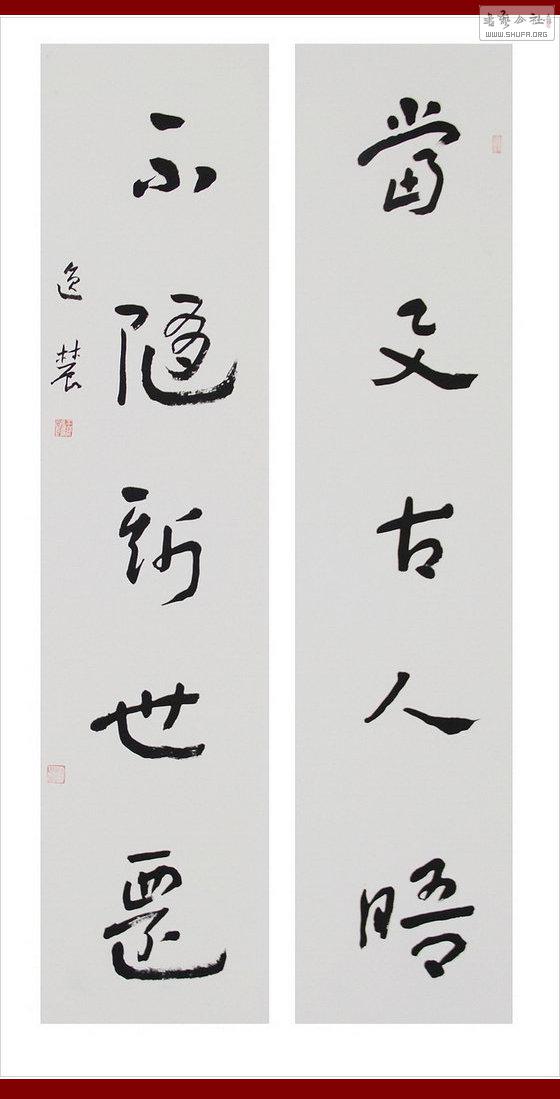 书艺公社
WWW.SHUFA.ORG
當古人晤
不隨新世遷
逸農